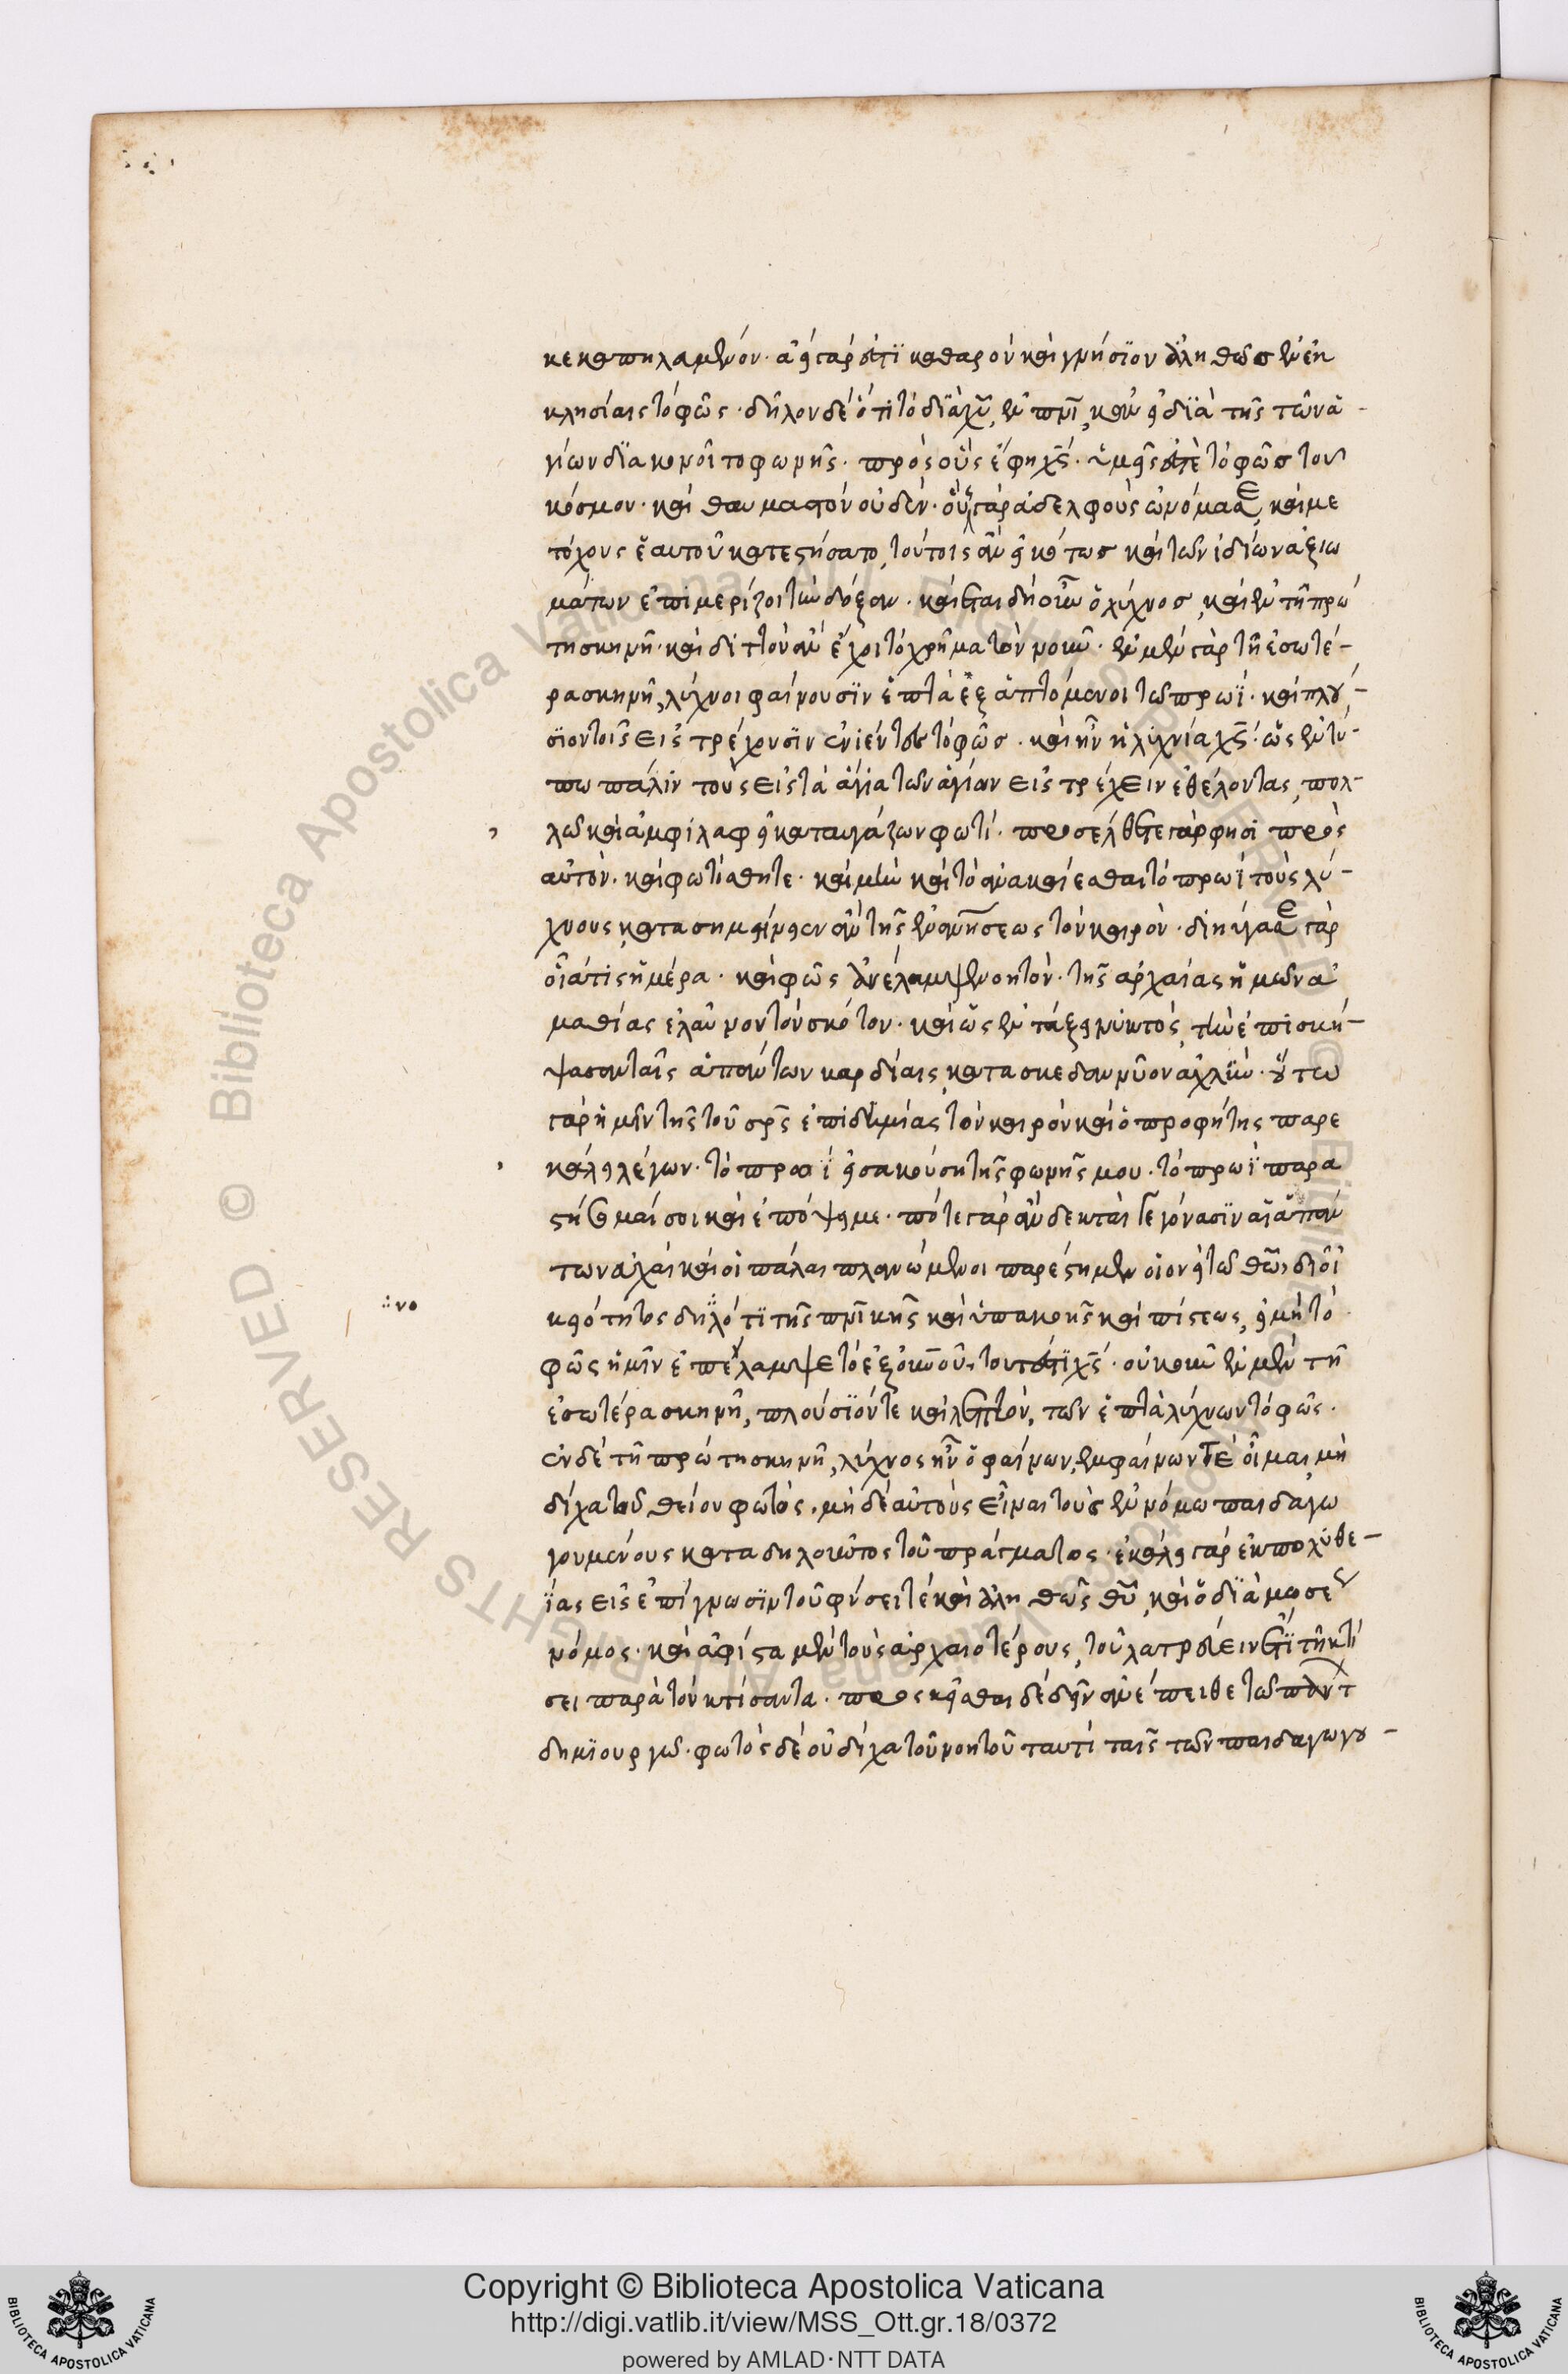 κεκαπηλευμένον· ἀεὶ γάρ ἐστι καθαρὸν καὶ γνήσιον ἀληθῶς ἐν ἐκ
κλησίαις τὸ φῶς· δῆλον δὲ ὅτι τὸ διὰ χυ, ἐν πνι, κἂν εἰ διὰ τῆς τῶν ἁ-
γίων διακονοῖτο φωνῆς· πρὸς οὓς ἔφη χς· ὑμεῖς ἐστὲ τὸ φῶς τοῦ
κόσμου· καὶ θαυμαστὸν οὐδέν· οὓς γὰρ ἀδελφοὺς ὠνόμασε, καὶ με
τόχους ἑαυτοῦ κατεστήσατο, τούτοις ἂν εἰκότως καὶ τῶν ἰδίων ἀξιω
μάτων ἐπιμερίζοι τὴν δόξαν· καὶ ἐπειδήπερ ὁ λύχνος, καὶ ἐν τῇ πρώ
τῃ σκηνῇ· καὶ διττὸν ἂν ἔχοι τὸ χρῆμα τὸν νοῦν· ἐν μὲν γὰρ τῇ ἐσωτέ-
ρα σκηνῇ, λύχνοι φαίνουσιν ἑπτὰ ἐξαπτόμενοι τὸ πρωΐ· καὶ πλού-
σιον τοῖς εἰστρέχουσιν ἐνιέντες τὸ φῶς· καὶ ἦν ἡ λυχνία χς· ὡς ἐν τύ-
πω πάλιν τοὺς εἰς τὰ ἅγια τῶν ἁγίων εἰστρέχειν ἐθέλοντας, πολ-
λῶ καὶ ἀμφιλαφεῖ καταυγάζων φωτί· προσέλθετε γάρ φησι πρὸς
αὐτὸν· καὶ φωτίσθητε· καὶ μὴν καὶ τὸ ἀνακαίεσθαι τὸ πρωῒ τοὺς λύ-
χνους, κατασημαίνειεν ἂν τῆς ἐναν̅σεως τὸν καιρὸν· διηύγασε γὰρ
οἷά τις ἡμέρα· καὶ φῶς ἀνέλαμψε νοητὸν· τῆς ἀρχαίας ἡμῶν ἀ
μαθίας ἐλαῦνον τὸν σκότον· καὶ ὡς ἐν τάξει νυκτός, τὴν ἐπισκή-
ψασαν ταῖς ἁπάντων καρδίαις, κατασκεδαννῦον ἀχλὺν· οὕτω
γὰρ ἡμῖν τῆς τοῦ σρς ἐπιδημίας τὸν καιρὸν καὶ ὁ προφήτης παρε
κάλει λέγων· τὸ πρωῒ εἰσακούση τῆς φωνῆς μου· τὸ πρωῒ παρα
στήσομαί σοι καὶ ἐπόψει με· πότε γὰρ εὐδεκταὶ γεγόνασιν αἱ ἁπάν
των εὐχαὶ καὶ οἱ πάλαι πλανώμενοι παρέστημεν οἱονεὶ τῶ θω, δι' οἰ
κειότητος δηλότι τῆς πνικῆς καὶ ὑπακοῆς καὶ πίστεως, εἰ μὴ τὸ
φῶς ἡμῖν ἐπέλαμψε τὸ ἐξ οὐνοῦ, τουτέστι χς· οὐκοῦν ἐν μὲν τῇ
ἐσωτέρα σκηνῇ, πλούσιόν τε καὶ λεπτὸν, τῶν ἑπτὰ λύχνων τὸ φῶς·
ἐν δὲ τῇ πρώτη σκηνῇ, λύχνος ἦν ὁ φαίνων, ἐμφαίνοντός οἶμαι, μὴ
δίχα τοῦ θείου φωτός· μὴ δὲ αὐτοὺς εἶναι τοὺς ἐν νόμω παιδαγω
γουμένους καταδηλοῦντος τοῦ πράγματος· ἐκάλει γὰρ ἐκ πολυθε-
ΐας εἰς ἐπίγνωσιν τοῦ φύσει τέ καὶ ἀληθῶς θυ, καὶ ὁ διὰ μωσέως
νόμος· καὶ ἀφίστα μὲν τοὺς ἀρχαιοτέρους, τοῦ λατρεύειν ἔτι τῇ κτί
σει παρὰ τὸν κτίσαντα· προσκεῖσθαι δὲ δεῖν ἀνέπειθε τῶ πάντ
δημιουργῶ· φωτὸς δὲ οὐ δίχα τοῦ νοητοῦ ταυτὶ ταῖς τῶν παιδαγωγου-
∴νο
Copyright © Biblioteca Apostolica Vaticana
http://digi.vatlib.it/view/MSS_Ott.gr.18/0372
powered by AMLAD·NTT DATA
BIBLIOTECA APOSTOLICA VATICANA
BIBLIOTECA APOSTOLICA VATICANA